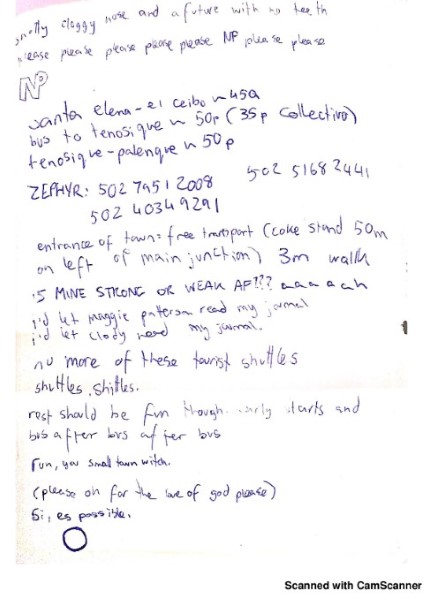 snotty cloggy nose and a future with no teeth
please please please please please NP please please
NP
santa elena - el ceibo ~ 45q
bus to tenosique ~ 50p (35p collectivo)
tenosique - palenque ~ 50p
502 5168 2441
ZEPHYR: 502 7951 2008
502 4034 9291
entrance of town = free transport (coke stand 50m
on left of main junction) 3m walk
IS MINE STRONG OR WEAK AF??? aaaaaah
i'd let maggie patterson read my journal
i'd let clody read my journal.
no more of these tourist shuttles
shuttles. shittles.
rest should be fun though. early starts and
bus after bus after bus
run, you small town witch.
(please oh for the love of god please)
Si, es possible.
Scanned with CamScanner